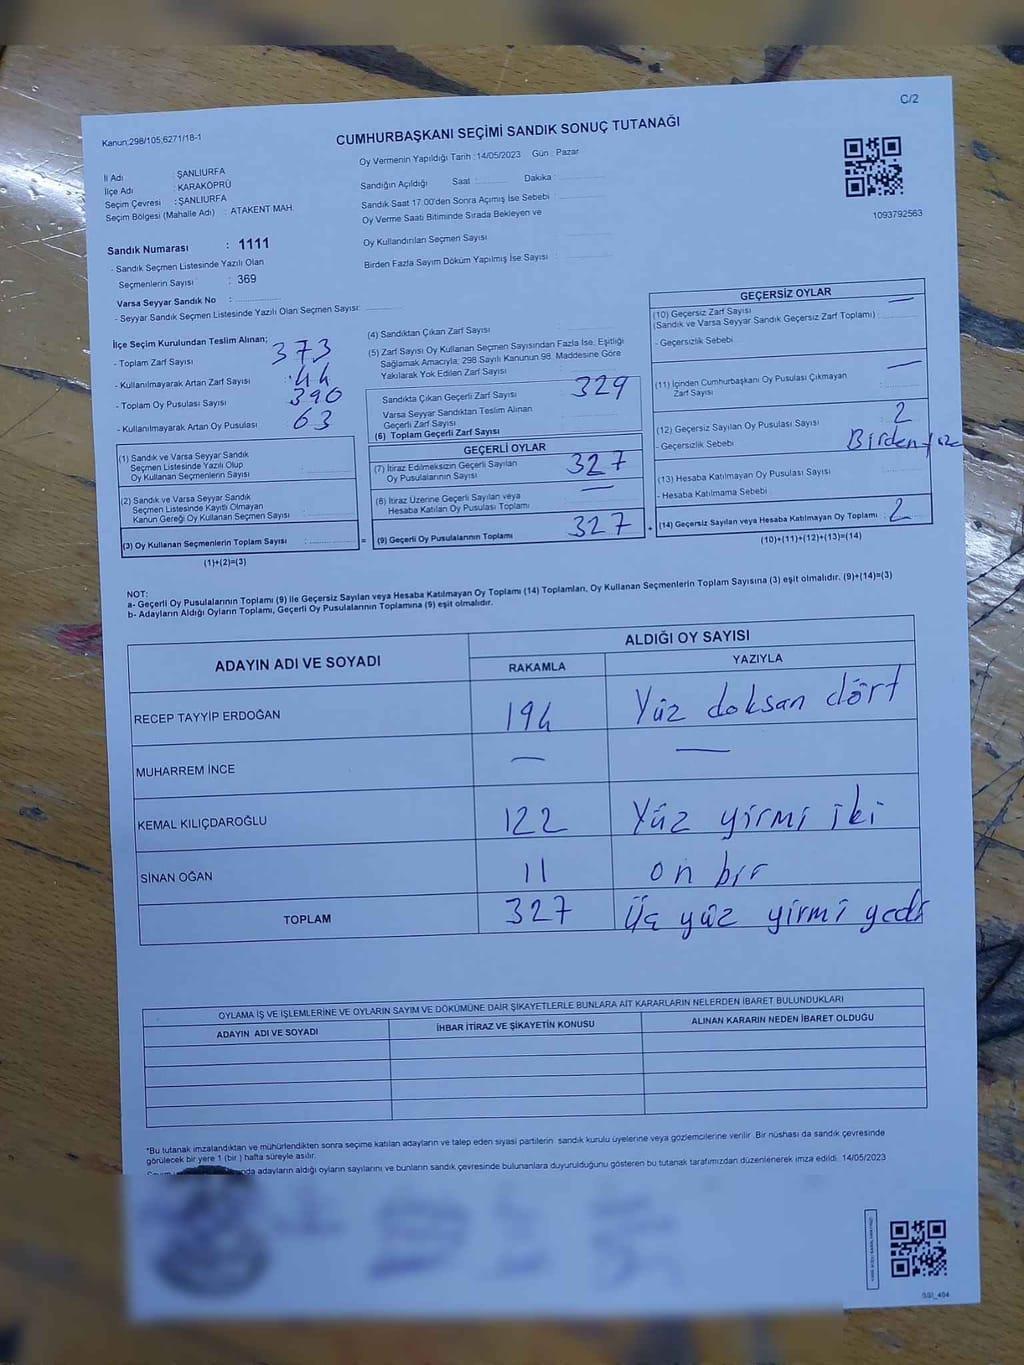 C/2
Kanun;298/105,6271/18-1
CUMHURBAŞKANI SEÇİMİ SANDIK SONUÇ TUTANAĞI
Oy Vermenin Yapıldığı Tarih : 14/05/2023 Gün : Pazar
İl Adı : ŞANLIURFA
İlçe Adı : KARAKÖPRÜ
Seçim Çevresi : ŞANLIURFA
Seçim Bölgesi (Mahalle Adı) : ATAKENT MAH.
Sandık Numarası : 1111
- Sandık Seçmen Listesinde Yazılı Olan
Seçmenlerin Sayısı : 369
Varsa Seyyar Sandık No :
- Seyyar Sandık Seçmen Listesinde Yazılı Olan Seçmen Sayısı:
Sandığın Açıldığı Saat : Dakika :
Sandık Saat 17.00'den Sonra Açımış İse Sebebi :
Oy Verme Saati Bitiminde Sırada Bekleyen ve
Oy Kullandırılan Seçmen Sayısı
Birden Fazla Sayım Döküm Yapılmış İse Sayısı :
1093792563
İlçe Seçim Kurulundan Teslim Alınan;
- Toplam Zarf Sayısı 373
- Kullanılmayarak Artan Zarf Sayısı 44
- Toplam Oy Pusulası Sayısı 390
- Kullanılmayarak Artan Oy Pusulası 63
(1) Sandık ve Varsa Seyyar Sandık
Seçmen Listesinde Yazılı Olup
Oy Kullanan Seçmenlerin Sayısı :
(2) Sandık ve Varsa Seyyar Sandık
Seçmen Listesinde Kayıtlı Olmayan
Kanun Gereği Oy Kullanan Seçmen Sayısı :
(3) Oy Kullanan Seçmenlerin Toplam Sayısı :
(1)+(2)=(3)
(4) Sandıktan Çıkan Zarf Sayısı
(5) Zarf Sayısı Oy Kullanan Seçmen Sayısından Fazla İse, Eşitliği
Sağlamak Amacıyla; 298 Sayılı Kanunun 98. Maddesine Göre
Yakılarak Yok Edilen Zarf Sayısı
Sandıkta Çıkan Geçerli Zarf Sayısı 329
Varsa Seyyar Sandıktan Teslim Alınan
Geçerli Zarf Sayısı
(6) Toplam Geçerli Zarf Sayısı
GEÇERLİ OYLAR
(7) İtiraz Edilmeksizin Geçerli Sayılan
Oy Pusulalarının Sayısı 327
(8) İtiraz Üzerine Geçerli Sayılan veya
Hesaba Katılan Oy Pusulası Toplamı —
= (9) Geçerli Oy Pusulalarının Toplamı 327 +
GEÇERSİZ OYLAR
(10) Geçersiz Zarf Sayısı
(Sandık ve Varsa Seyyar Sandık Geçersiz Zarf Toplamı) : —
- Geçersizlik Sebebi
(11) İçinden Cumhurbaşkanı Oy Pusulası Çıkmayan
Zarf Sayısı : —
(12) Geçersiz Sayılan Oy Pusulası Sayısı 2
- Geçersizlik Sebebi Birden
(13) Hesaba Katılmayan Oy Pusulası Sayısı
- Hesaba Katılmama Sebebi
(14) Geçersiz Sayılan veya Hesaba Katılmayan Oy Toplamı : 2
(10)+(11)+(12)+(13)=(14)
NOT:
a- Geçerli Oy Pusulalarının Toplamı (9) ile Geçersiz Sayılan veya Hesaba Katılmayan Oy Toplamı (14) Toplamları, Oy Kullanan Seçmenlerin Toplam Sayısına (3) eşit olmalıdır. (9)+(14)=(3)
b- Adayların Aldığı Oyların Toplamı, Geçerli Oy Pusulalarının Toplamına (9) eşit olmalıdır.
ADAYIN ADI VE SOYADI
ALDIĞI OY SAYISI
RAKAMLA YAZIYLA
RECEP TAYYİP ERDOĞAN 194 Yüz doksan dört
MUHARREM İNCE — —
KEMAL KILIÇDAROĞLU 122 Yüz yirmi iki
SİNAN OĞAN 11 on bir
TOPLAM 327 Üç yüz yirmi yedi
OYLAMA İŞ VE İŞLEMLERİNE VE OYLARIN SAYIM VE DÖKÜMÜNE DAİR ŞİKAYETLERLE BUNLARA AİT KARARLARIN NELERDEN İBARET BULUNDUKLARI
ADAYIN ADI VE SOYADI İHBAR İTİRAZ VE ŞİKAYETİN KONUSU ALINAN KARARIN NEDEN İBARET OLDUĞU
*Bu tutanak imzalandıktan ve mühürlendikten sonra seçime katılan adayların ve talep eden siyasi partilerin sandık kurulu üyelerine veya gözlemcilerine verilir. Bir nüshası da sandık çevresinde
görülecek bir yere 1 (bir ) hafta süreyle asılır.
adayların aldığı oyların sayılarını ve bunların sandık çevresinde bulunanlara duyurulduğunu gösteren bu tutanak tarafımızdan düzenlenerek imza edildi. 14/05/2023